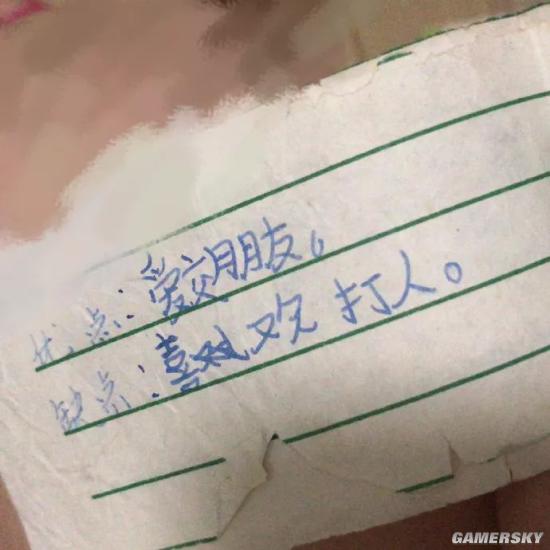 优点：爱交朋友。
缺点：喜欢打人。
GAMERSKY